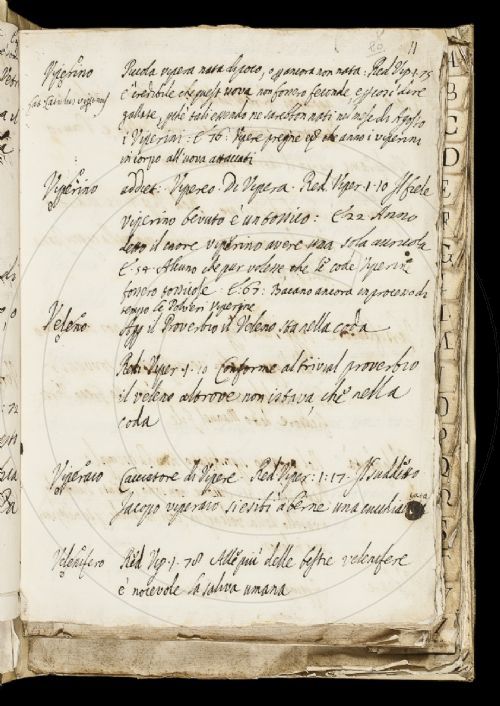 11
Viperino Piccola vipera nata di poco, o ancora non nata. Red Vip. 1. 75
è credibile che quest' uova non fossero feconde, e si può dire
galate, perchè tali essendo ne sarebbon nati nel mese di Agosto
i Viperini: E 76: Vipere pregne che anno i viperini
in corpo all' uova attaccati
Viperino addiet: Vipereo. Di Vipera. Red. Viper. 1. 10 Il fiele
viperino bevuto è un tossico: E. 22. Anno
detto il cuore viperino avere una sola auricola
E. 54. Alcuno che pur volesse che le code Viperine
fossero tossicose. E. 63: Bacano ancora in processo di
tempo le Polveri Viperine
Veleno Agg. il Proverbio il Veleno sta nella coda
Red. Viper. 1. 10 Conforme al trivial proverbio
il veleno altrove non istava, che nella
coda
Viperaio Cacciatore di Vipere. Red Viper: 1. 17. Il suddetto
Jacopo viperaio si esibì a berne una cucchiaiata
Velenifero Red. Vip. 1. 78 delle bestie velenifere
è nocevole la saliva umana
A
B
C
D
E
F
G
I
L
M
O
P
Q
R
S